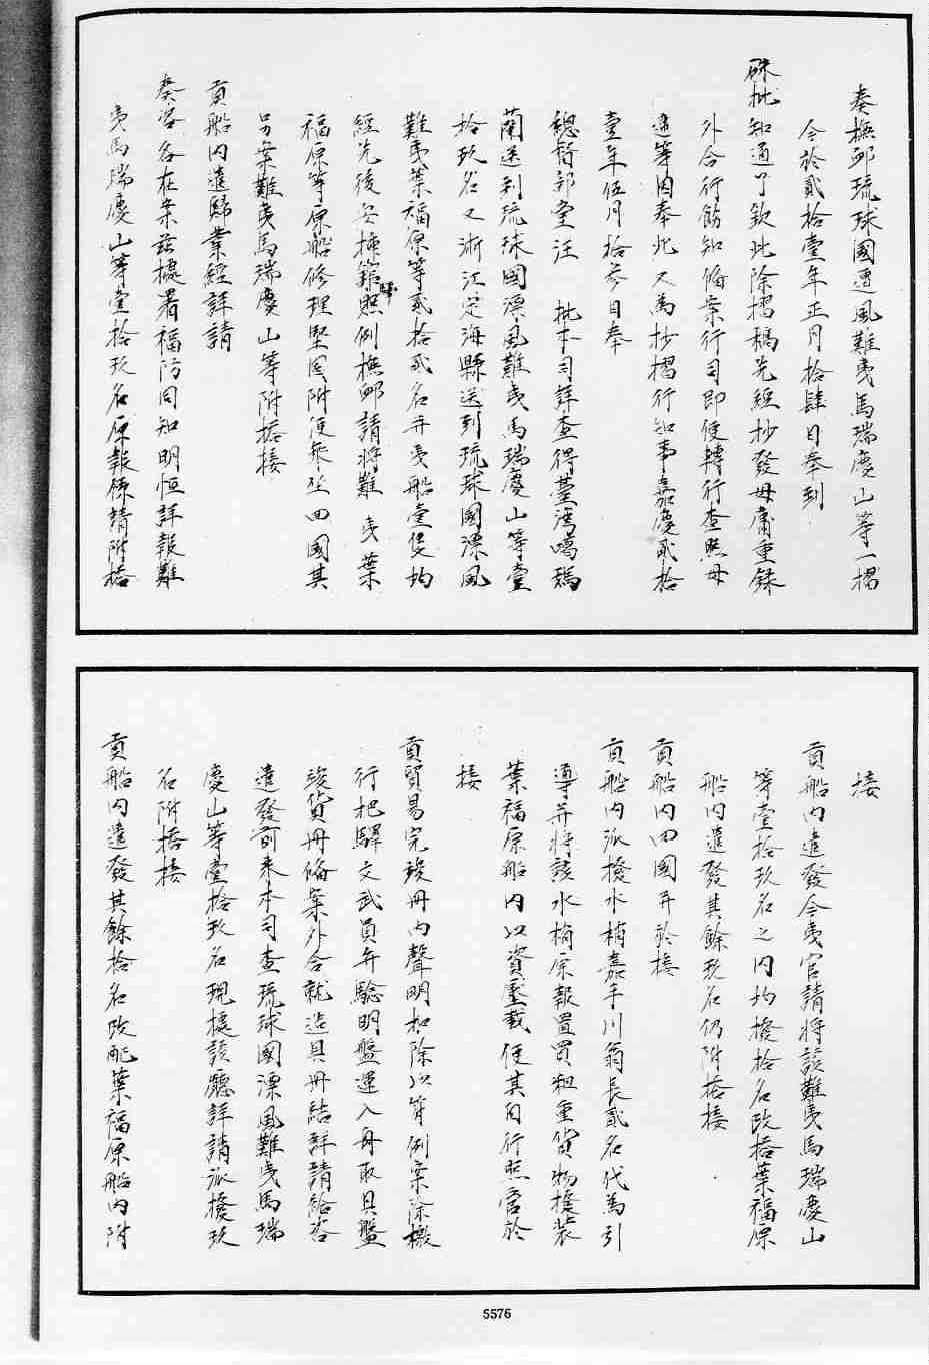 奏撫卹琉球國遭風難夷馬瑞慶山等一摺
今於貳拾壹年正月拾肆日奉到
硃批知道了欽此除摺稿先經抄發毋庸重錄
外合行飭知備案行司即便轉行查照毋
違等因奉此又為抄摺行知事嘉慶貳拾
壹年伍月拾參日奉
總督部堂汪 批本司詳查得臺灣噶瑪
蘭送到琉球國漂風難夷馬瑞慶山等壹
拾玖名又浙江定海縣送到琉球國漂風
難夷葉福原等貳拾貳名并夷船壹隻均
經先後安插館驛照例撫卹請將難夷葉
福原等原船修理堅固附便乘坐回國其
另案難夷馬瑞慶山等附搭接
貢船內遣歸業經詳請
奏咨各在案茲據署福防同知明恒詳報難
夷馬瑞慶山等壹拾玖名原報係請附搭
接
貢船內遣發今夷官請將該難夷馬瑞慶山
等壹拾玖名之內均撥拾名改搭葉福原
船內遣發其餘玖名仍附搭接
貢船內回國并於接
貢船內派撥水梢嘉手川翁長貳名代為引
導并將該水梢原報置買粗重貨物撥裝
葉福原船內以資壓載便其自行照管於
接
貢貿易完竣冊內聲明扣除以符例案除檄
行把驛文武員弁驗明盤運入舟取具盤
竣貨冊備案外合就造具冊結詳請給咨
遣發前來本司查琉球國漂風難夷馬瑞
慶山等壹拾玖名現據該廳詳請派撥玖
名附搭接
貢船內遣發其餘拾名改配葉福原船內附
5576